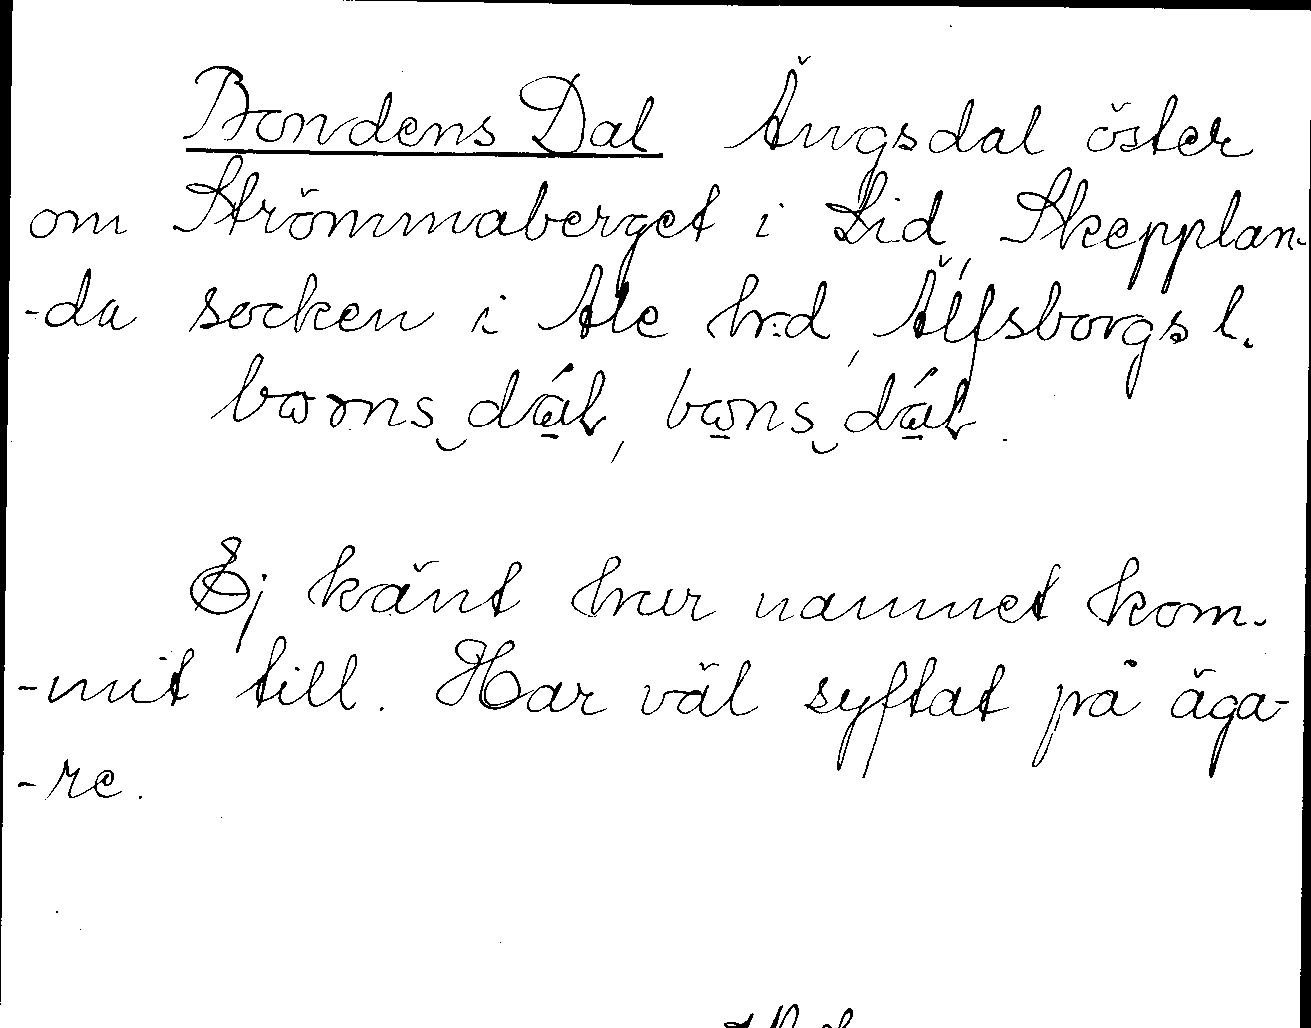 Bondens Dal Ängsdal öster
om Strömmaberget i Lid, Skepplan-
-da socken i Ale hrd, Älfsborgs l.
Ej känt hur namnet kom-
-mit till. Har väl syftat på äga-
-re.